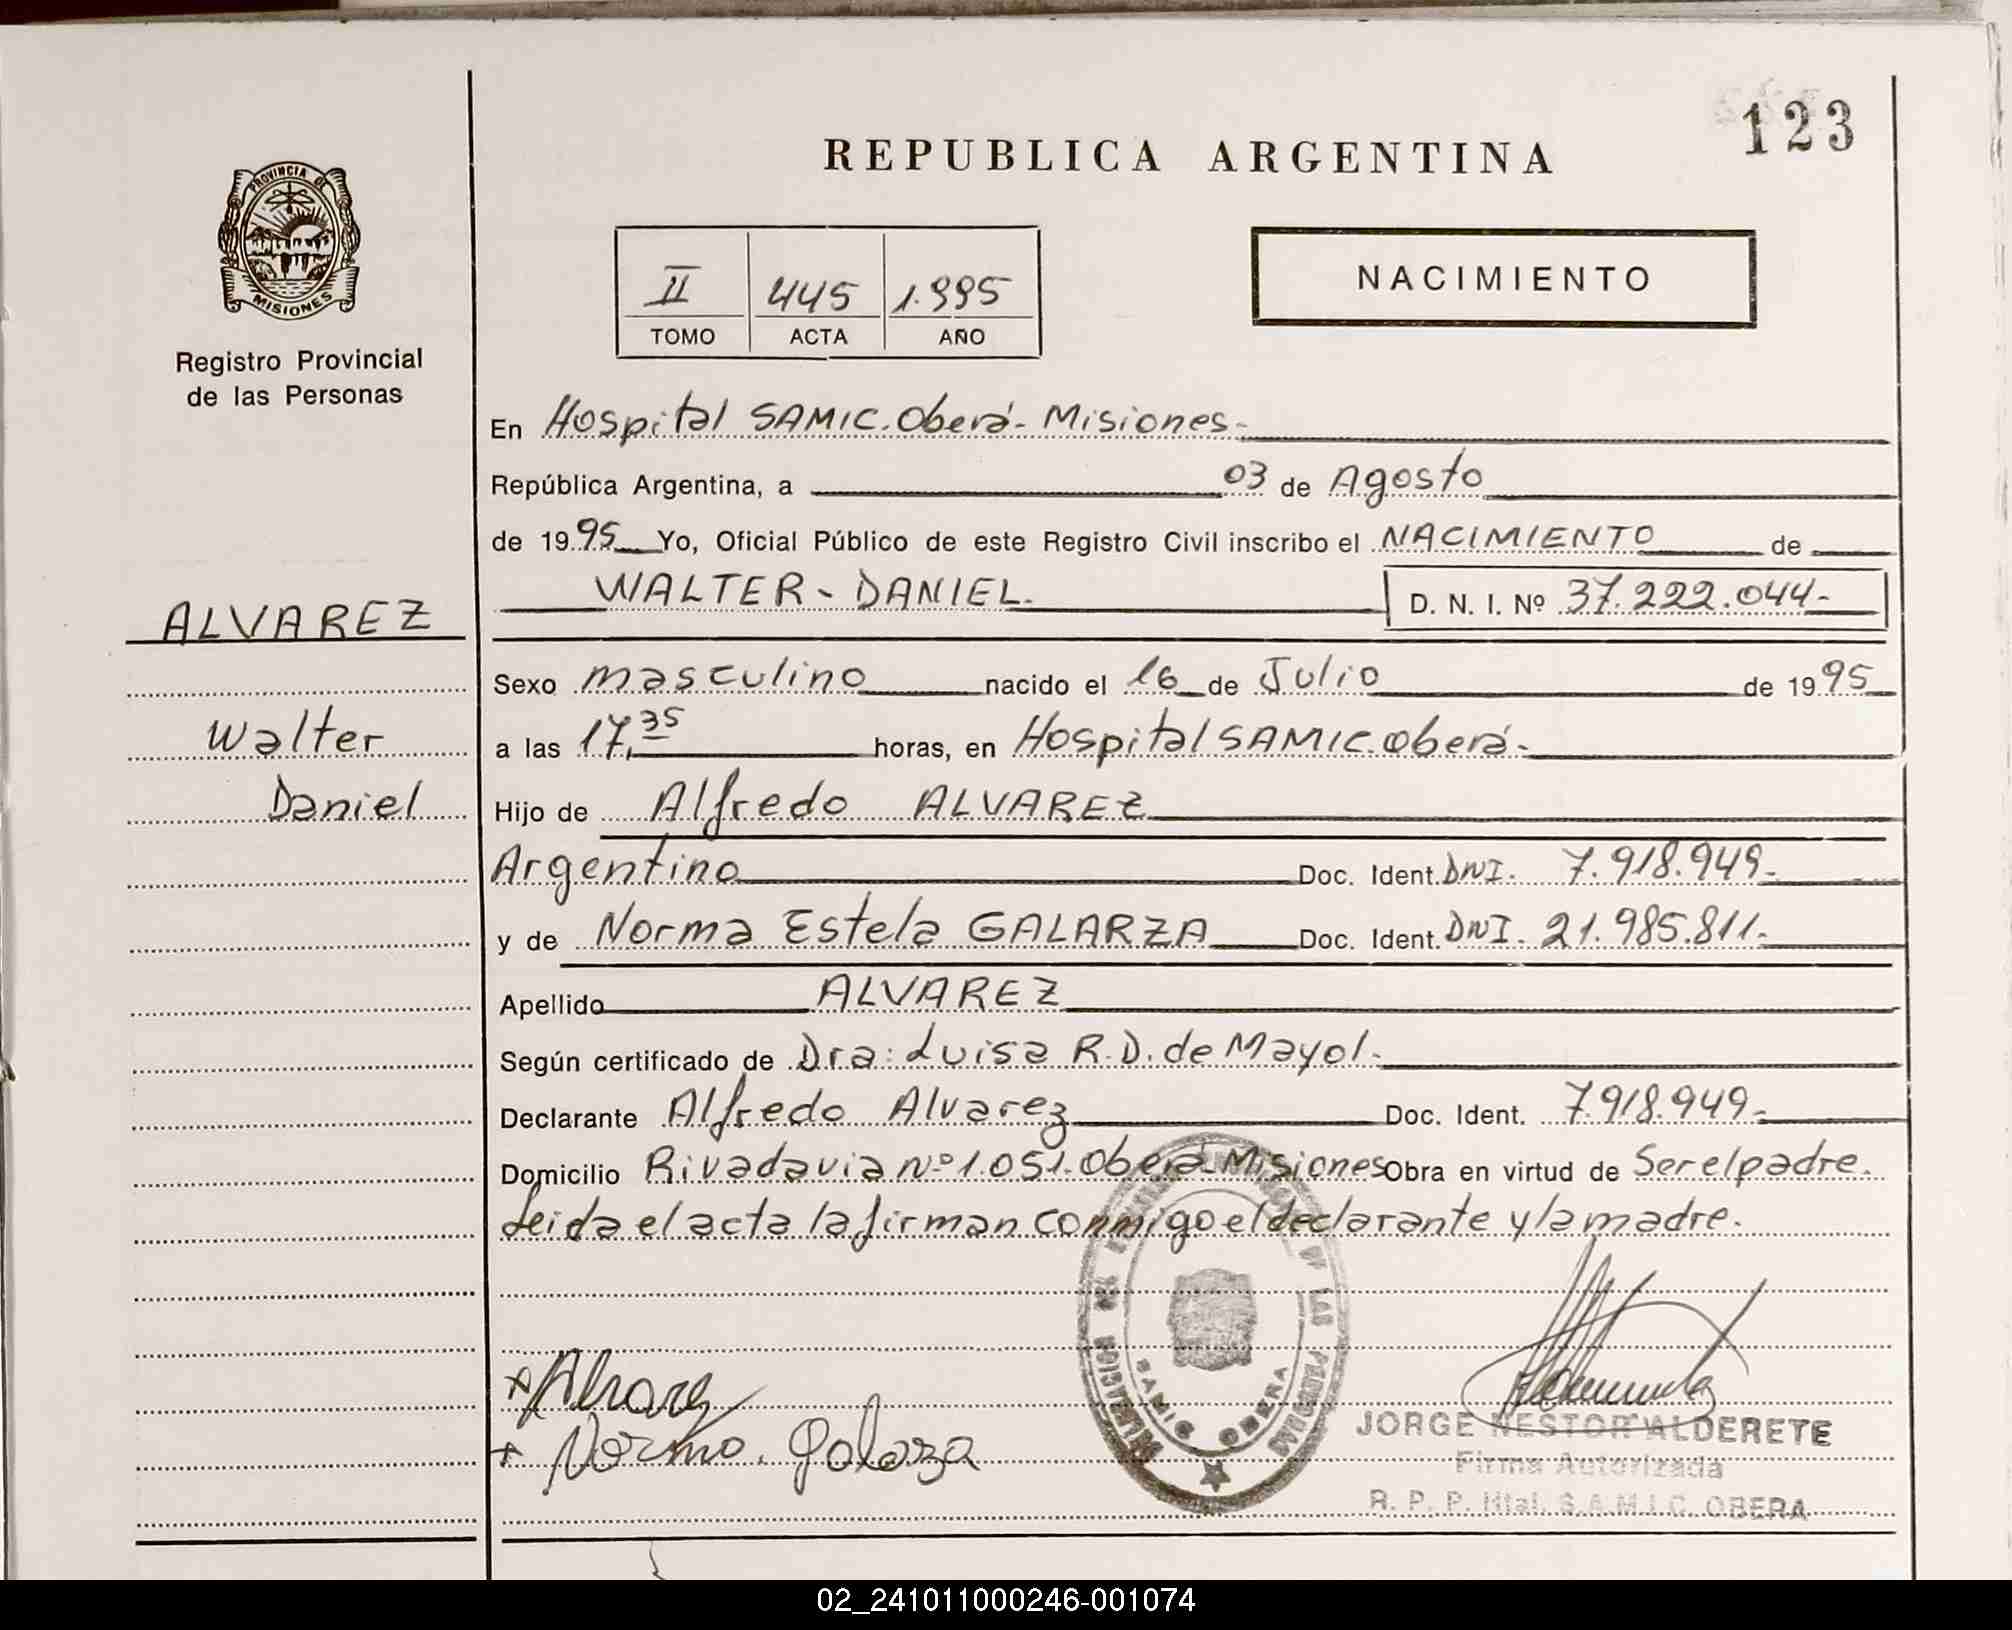 123
REPUBLICA ARGENTINA
PROVINCIA DE
MISIONES
Registro Provincial
de las Personas
II 445 1.995
TOMO ACTA AÑO
NACIMIENTO
En Hospital SAMIC. Oberá - Misiones.-
República Argentina, a 03 de Agosto
de 1995 Yo, Oficial Público de este Registro Civil inscribo el NACIMIENTO de
WALTER - DANIEL. D. N. I. Nº 37.222.044-
ALVAREZ
Sexo masculino nacido el 16 de Julio de 1995
Walter
a las 17,35 horas, en Hospital SAMIC. Oberá-
Daniel
Hijo de Alfredo ALVAREZ
Argentino Doc. Ident. DNI. 7.918.949-
y de Norma Estela GALARZA Doc. Ident. DNI. 21.985.811.-
Apellido ALVAREZ
Según certificado de Dra: Luisa R. D. de Mayol.-
Declarante Alfredo Alvarez Doc. Ident. 7.918.949-
Domicilio Rivadavia Nº 1.051. Oberá - Misiones Obra en virtud de Ser el padre.
Leida el acta la firman conmigo el declarante y la madre.
DE LAS PERSONAS
SAMIC OBERA
+ Alvarez
+ Norma. Galarza
JORGE NESTOR ALDERETE
Firma Autorizada
R. P. P. Htal. S.A.M.I.C. OBERA
02_241011000246-001074